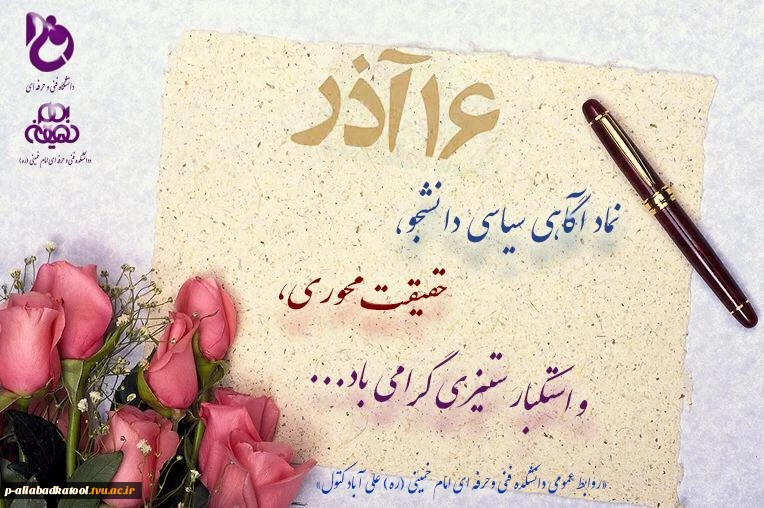 دانشگاه فنی و حرفه ای
دانشکده فنی و حرفه ای امام خمینی (ره)
۱۶ آذر
نماد آگاهی سیاسی دانشجو،
حقیقت محوری،
و استکبار ستیزی گرامی باد...
«روابط عمومی دانشکده فنی و حرفه ای امام خمینی (ره) علی آباد کتول»
p-aliabadkatool.tvu.ac.ir